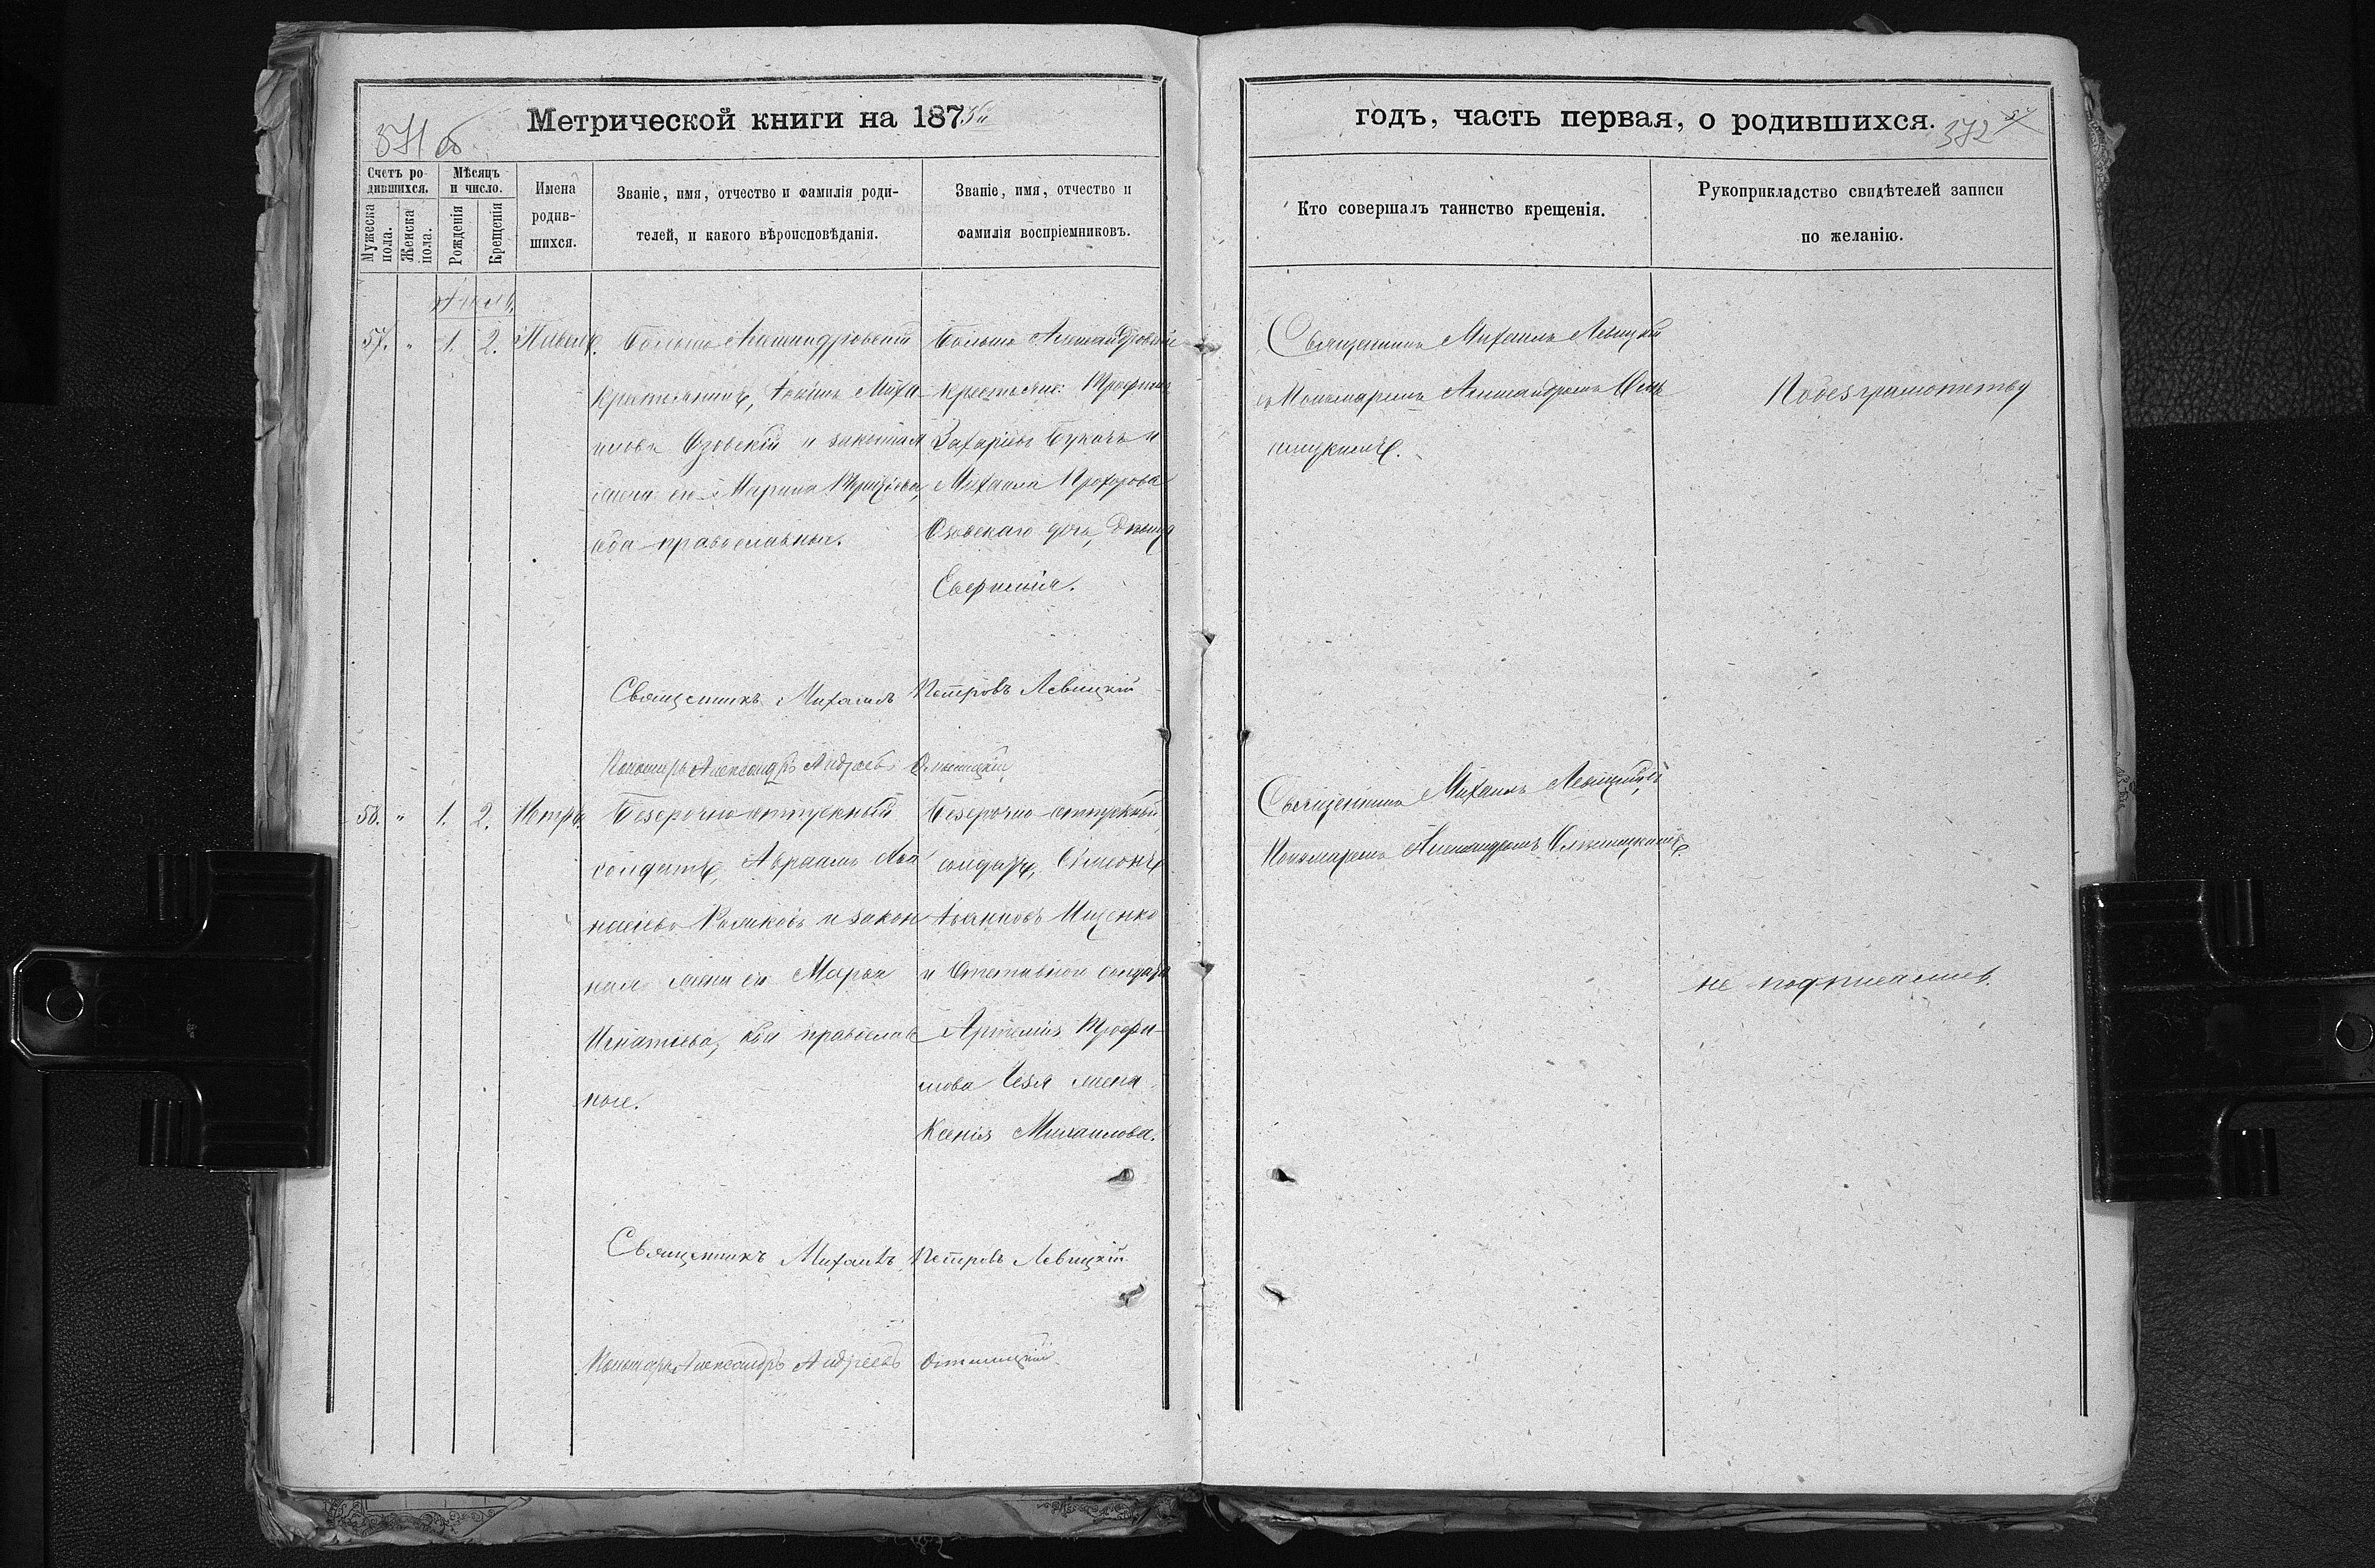 371 об
Метрической книги на 1875й
годъ, часть первая, о родившихся.
372
Счетъ ро-
дившихся.
Мѣсяцъ
и число.
Мужеска
пола.
Женска
пола.
Рожденія
Крещенія
Имена
родив-
шихся.
Званіе, имя, отчество и фамилія роди-
телей, и какого вѣроисповѣданія.
Званіе, имя, отчество и
фамилія воспріемниковъ.
Кто совершалъ таинство крещенія.
Рукоприкладство свидѣтелей записи
по желанію.
57. " 1. 2.
Больше Александровскій
Крестьянинъ, Миха
иловъ Озовскій и законная
жена его Марина
оба православные.
Больше Александровскій
крестьянинъ Трофимъ
Захаріевъ Букачъ и
Михаила Прохорова
Озовскаго дочь, Дѣвица
Евфимія.
Священникъ Михаилъ Левицкій
съ Пономаремъ Александромъ
Побезграмотству
Священникъ Михаилъ Петровъ Левицкій
Пономарь Александръ Андреевъ
58. " 1. 2. Петръ.
Безсрочно отпускный
солдатъ, Авраамъ Афа
насіевъ и закон
ная жена его Марья
Игнатіева, оба православ
ные.
Безсрочно отпускный
солдатъ, Симеонъ
Ищенко
и Отставной солдата
Артемія Трофи-
мова жена
Ксенія Михаилова.
Священникъ Михаилъ Левицкій съ
Пономаремъ Александромъ
не подписались.
Священникъ Михаилъ Петровъ Левицкій
Пономарь Александръ Андреевъ